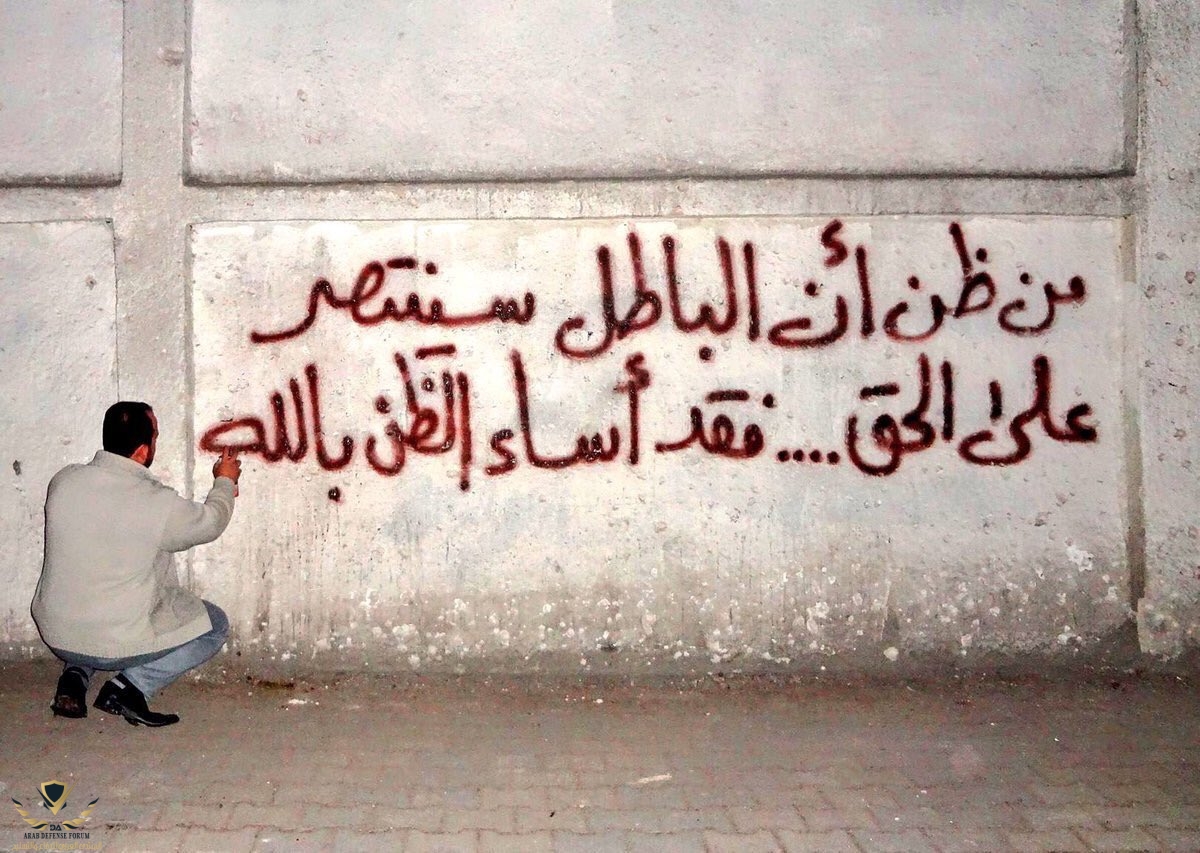 من ظن أن الباطل سينتصر
على الحق .... فقد أساء الظن بالله
DA
ARAB DEFENSE FORUM